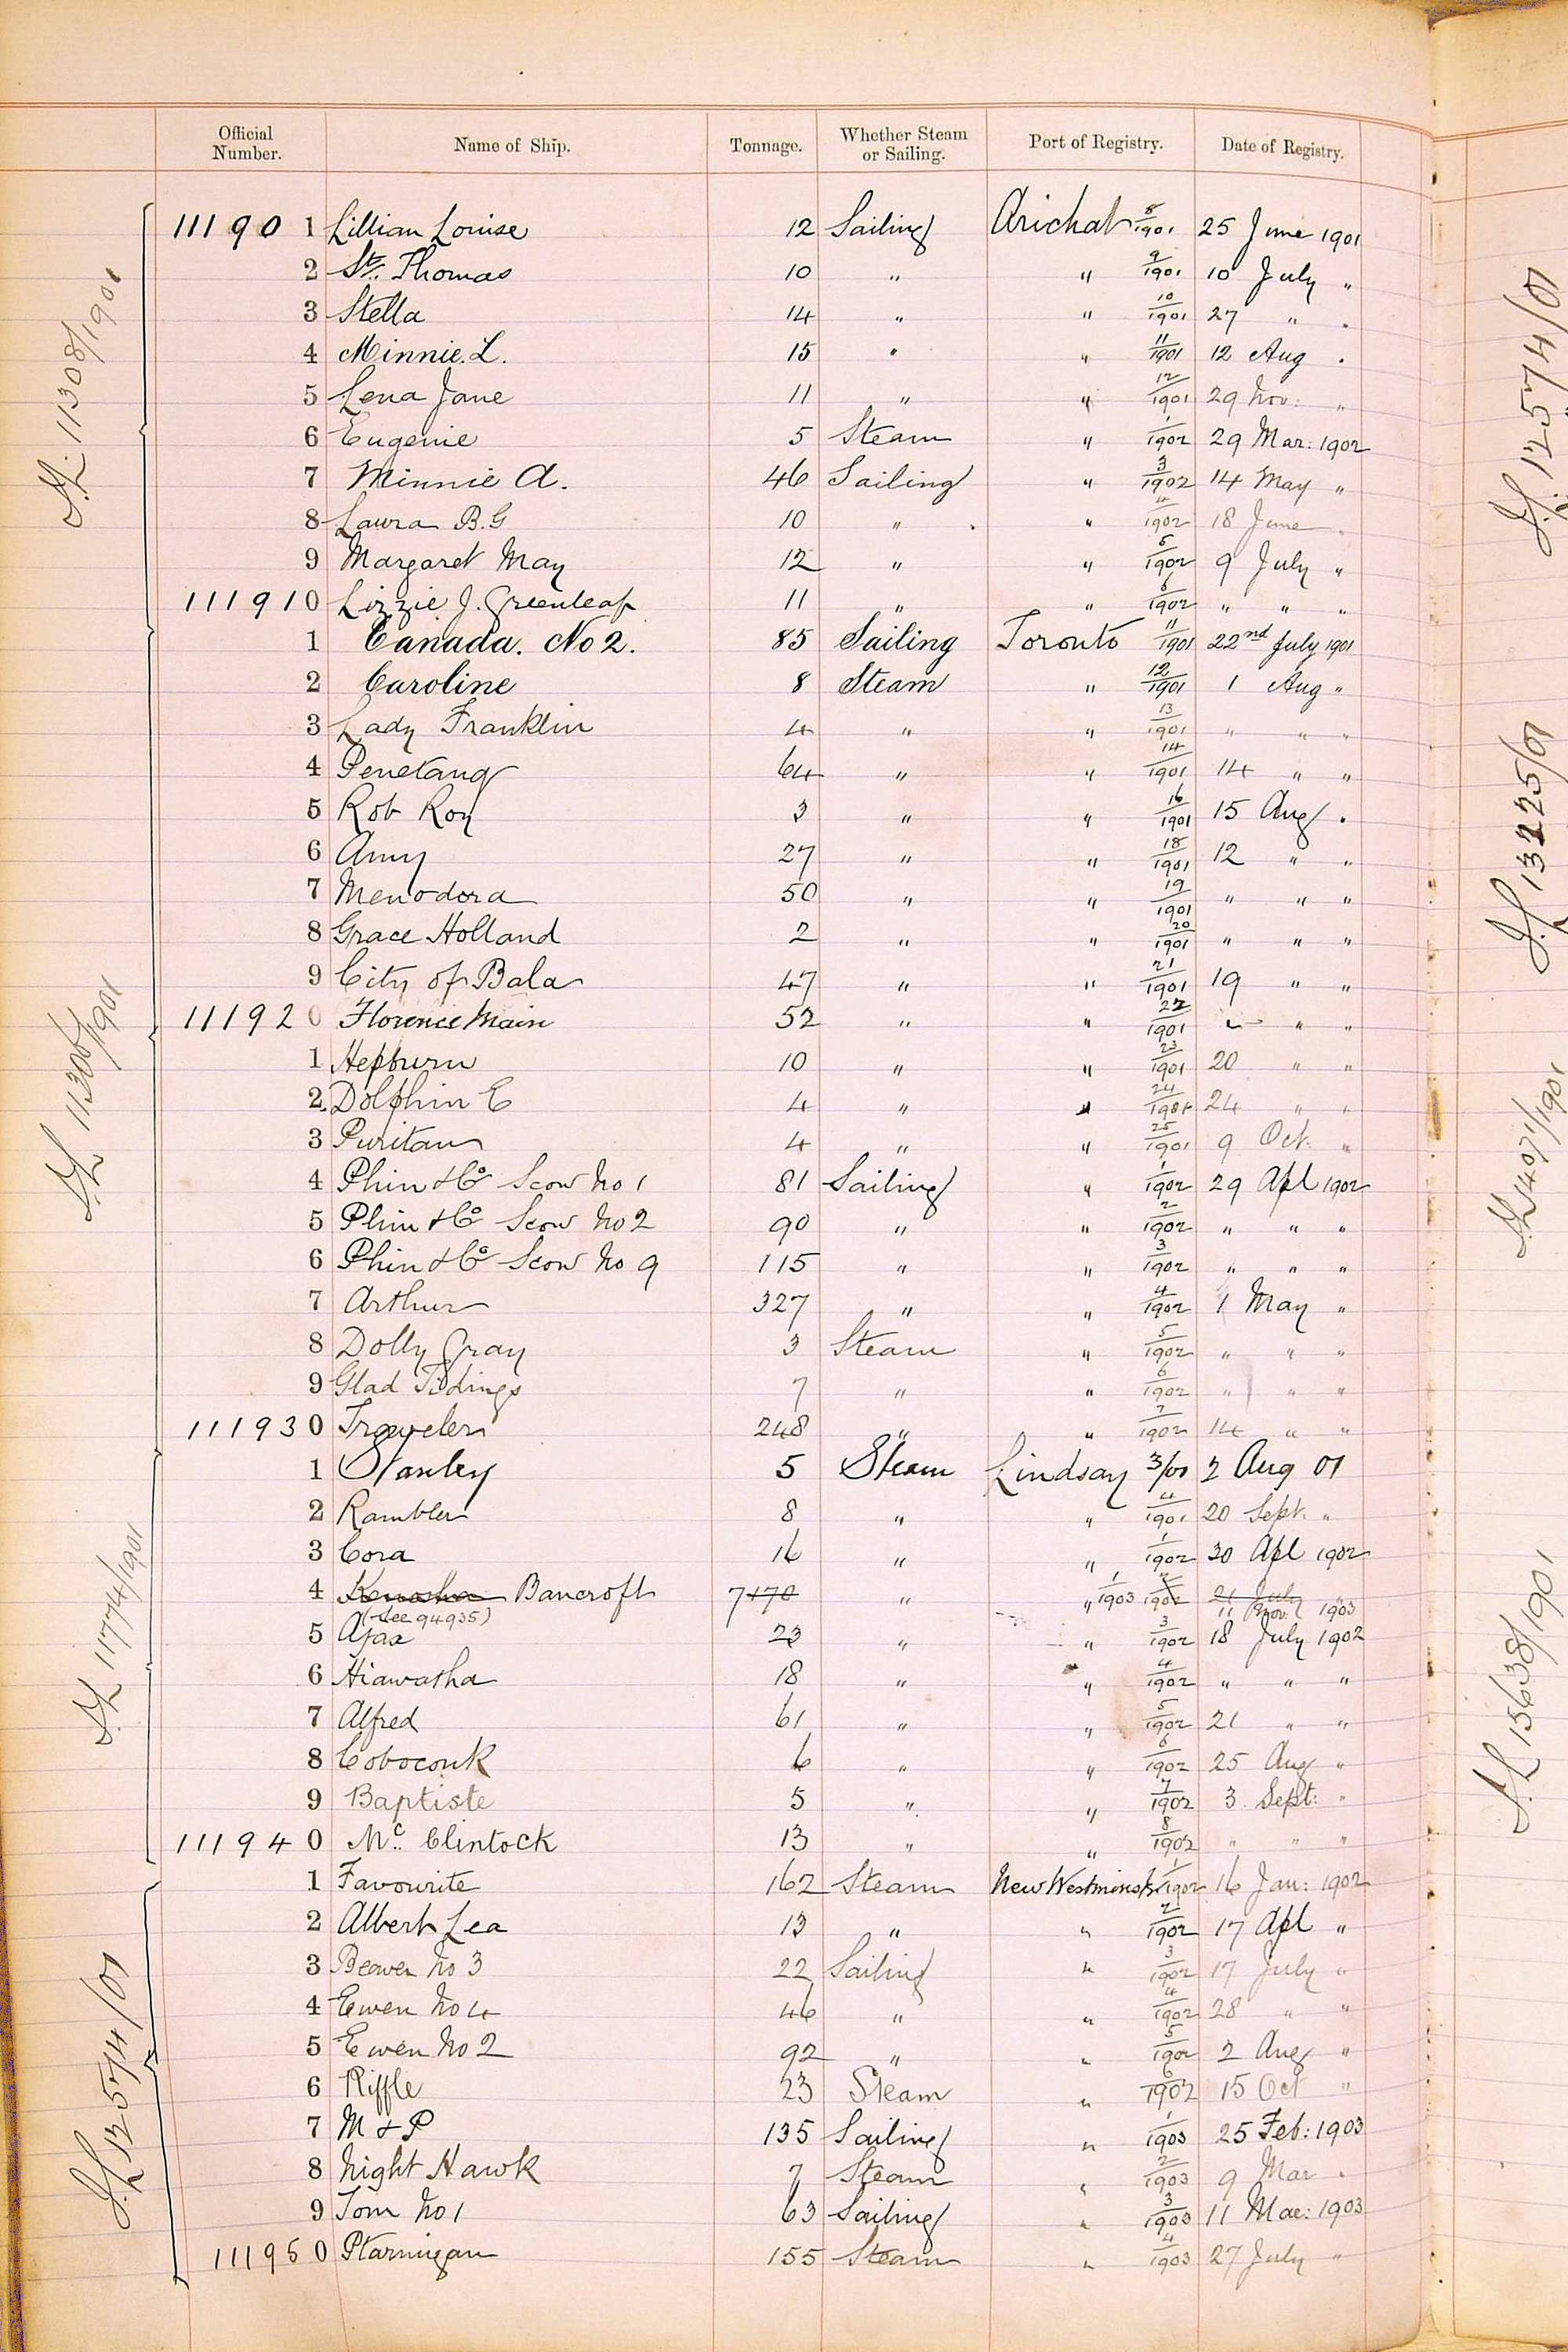 Official Number. Name of Ship. Tonnage. Whether Steam or Sailing. Port of Registry. Date of Registry.
11190 1 Lillian Louise 12 Sailing Arichat 8/1901 25 June 1901
2 St. Thomas 10 " " 9/1901 10 July "
3 Stella 14 " " 10/1901 27 " "
4 Minnie. L. 15 " " 11/1901 12 Aug "
5 Lena Jane 11 " " 12/1901 29 Nov: "
6 Eugenie 5 Steam " 1/1902 29 Mar: 1902
7 Minnie A. 46 Sailing " 3/1902 14 May "
8 Laura B.G 10 " " 4/1902 18 June "
9 Margaret May 12 " " 5/1902 9 July "
11191 0 Lizzie J. Greenleaf 11 " " 6/1902 " " "
1 Canada. No 2. 85 Sailing Toronto 11/1901 22nd July 1901
2 Caroline 8 Steam " 12/1901 1 Aug "
3 Lady Franklin 4 " " 13/1901 " " "
4 Penetang 64 " " 14/1901 14 " "
5 Rob Roy 3 " " 16/1901 15 Aug "
6 Amy 27 " " 18/1901 12 " "
7 Menodora 50 " " 19/1901 " " "
8 Grace Holland 2 " " 20/1901 " " "
9 City of Bala 47 " " 21/1901 19 " "
11192 0 Florence Main 52 " " 22/1901 " " "
1 Hepburn 10 " " 23/1901 20 " "
2 Dolphin E 4 " " 24/1901 24 " "
3 Puritan 4 " " 25/1901 9 Oct: "
4 Phin & Co Scow No 1 81 Sailing " 1/1902 29 Apl 1902
5 Phin & Co Scow No 2 90 " " 2/1902 " " "
6 Phin & Co Scow No 9 115 " " 3/1902 " " "
7 Arthur 327 " " 4/1902 1 May "
8 Dolly Gray 3 Steam " 5/1902 " " "
9 Glad Tidings 7 " " 6/1902 " " "
11193 0 Traveler 248 " " 7/1902 14 " "
1 Stanley 5 Steam Lindsay 3/01 2 Aug 01
2 Rambler 8 " " 4/1901 20 Sept: "
3 Cora 16 " " 1/1902 30 Apl 1902
4 Kenosha Bancroft 7 170 " " 1/1903 2/1902 21 July "
(See 94935) 11 Nov: 1903
5 Ajax 23 " " 3/1902 18 July 1902
6 Hiawatha 18 " " 4/1902 " " "
7 Alfred 61 " " 5/1902 21 " "
8 Coboconk 6 " " 6/1902 25 Aug "
9 Baptiste 5 " " 7/1902 3 Sept: "
11194 0 Mc Clintock 13 " " 8/1902 " " "
1 Favourite 162 Steam New Westminster 1/1902 16 Jan: 1902
2 Albert Lea 13 " " 2/1902 17 Apl "
3 Beaver No 3 22 Sailing " 3/1902 17 July "
4 Ewen No 4 46 " " 4/1902 28 " "
5 Ewen No 2 92 " " 5/1902 2 Aug "
6 Riffle 23 Steam " 6/1902 15 Oct "
7 M & P 135 Sailing " 1/1903 25 Feb: 1903
8 Night Hawk 7 Steam " 2/1903 9 Mar "
9 Tom No 1 63 Sailing " 3/1903 11 Mar: 1903
11195 0 Ptarmigan 155 Steam " 4/1903 27 July "
11308/1901
11306/1901
11774/1901
12574/01
12574/01
13225/01
14071/1901
15638/1901